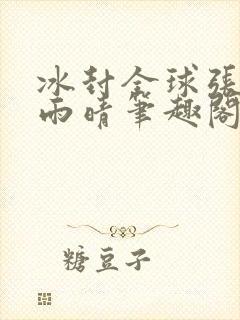 冰封全球張
雨晴筆趣閣
糖豆子